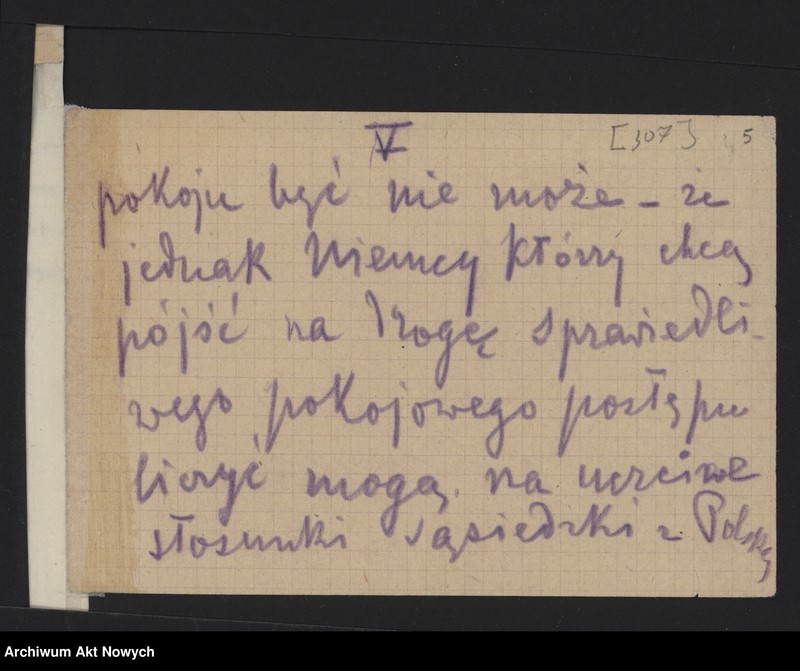 V [307] 5
pokoju być nie może – że
jednak Niemcy którzy chcą
pójść na drogę sprawiedli-
wego pokojowego postępu
liczyć mogą na uczciwe
stosunki sąsiedzki z Polską
Archiwum Akt Nowych